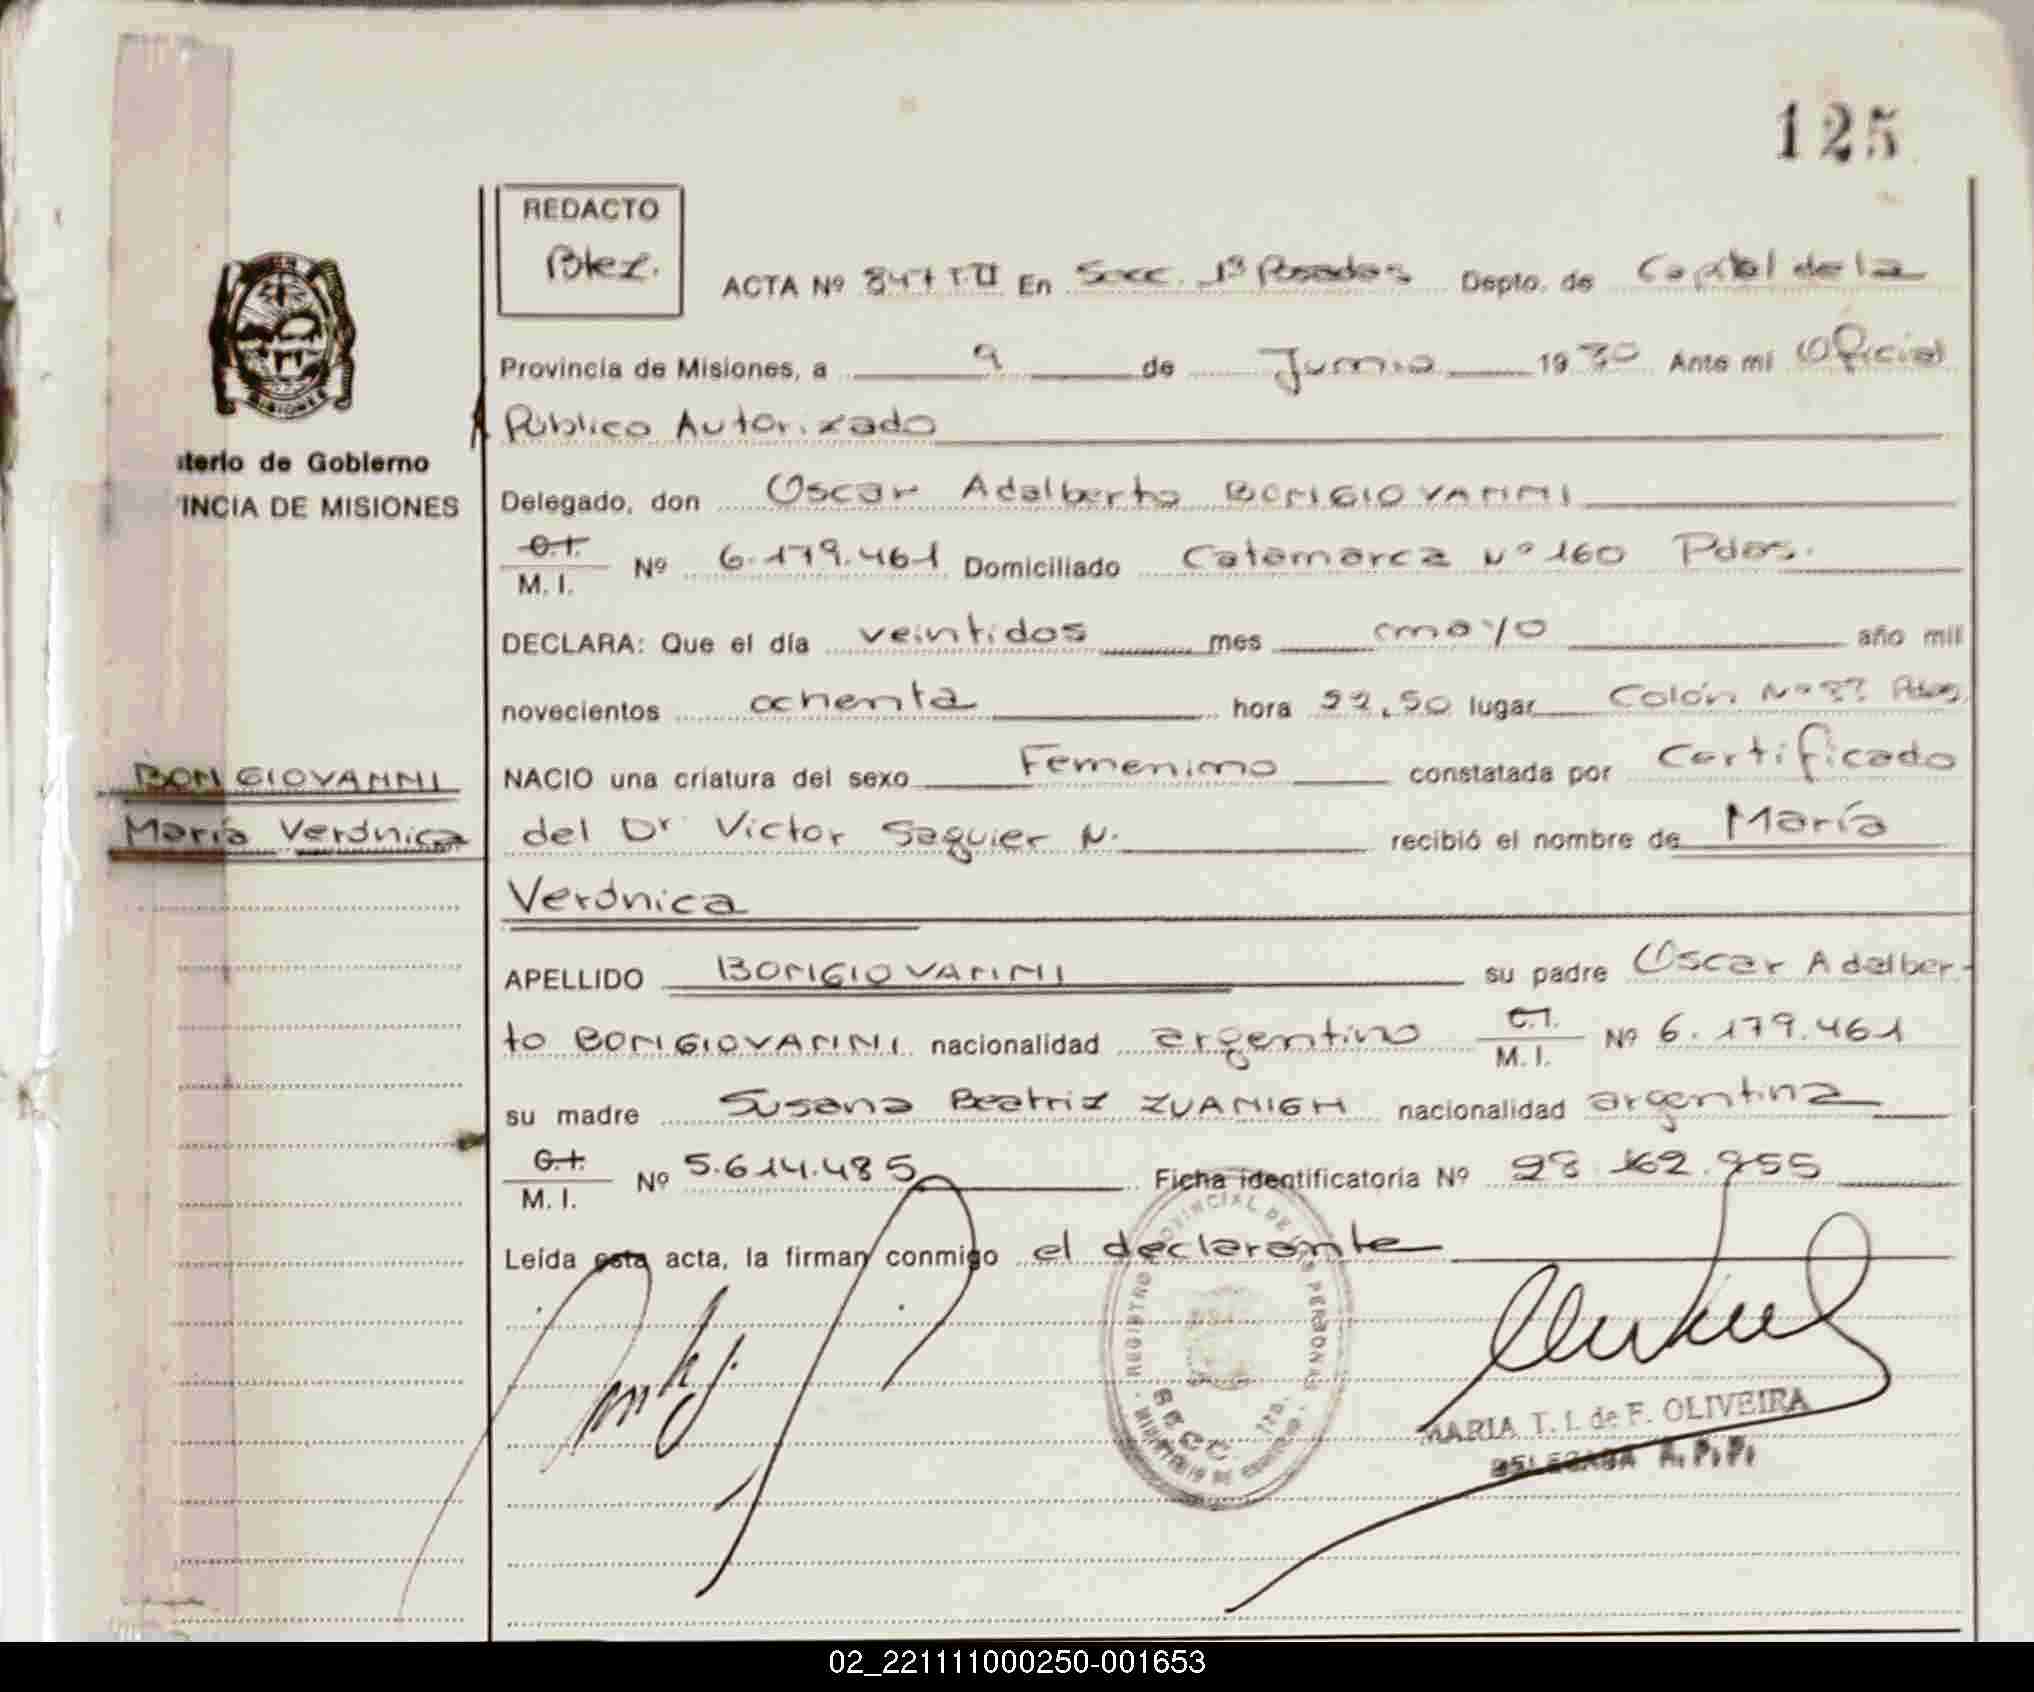 125
REDACTO
Btez.
ACTA Nº 847 T.II En Secc. 1ª Posadas Depto. de Capital de la
Provincia de Misiones, a 9 de Junio 1980 Ante mí Oficial
Público Autorizado
Delegado, don Oscar Adalberto BONGIOVANNI
C.I. M.I. Nº 6.179.461 Domiciliado Catamarca Nº 160 Pdas.
DECLARA: Que el día veintidos mes mayo año mil
novecientos ochenta hora 22,50 lugar Colón Nº Pdas.
NACIO una criatura del sexo Femenino constatada por Certificado
del Dr Victor Saguier N. recibió el nombre de María
Verónica
APELLIDO BONGIOVANNI su padre Oscar Adalber-
to BONGIOVANNI nacionalidad argentino C.I. M.I. Nº 6.179.461
su madre Susana Beatriz ZUANIGH nacionalidad argentina
C.I. M.I. Nº 5.614.485 Ficha identificatoria Nº 28 162.955
Leída esta acta, la firman conmigo el declarante
MARIA T. I. de F. OLIVEIRA
DELEGADA R.P.P.
REGISTRO PROVINCIAL DE LAS PERSONAS
SECC. 1ra.
MINISTERIO DE GOBIERNO
MISIONES
terio de Gobierno
INCIA DE MISIONES
BONGIOVANNI
María Verónica
02_221111000250-001653